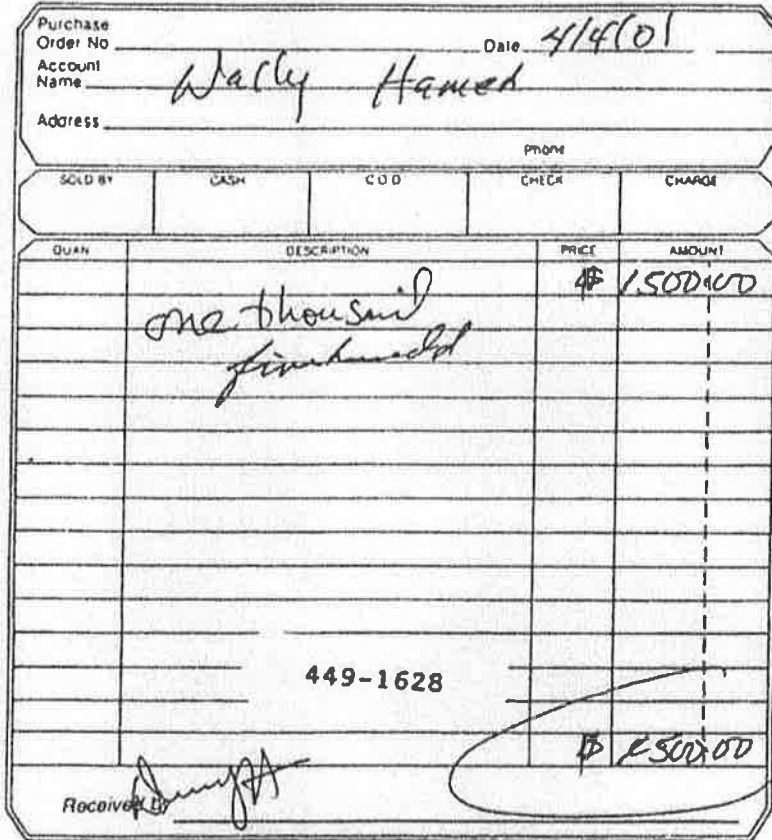 Purchase
Order No Date 4/4/01
Account
Name Wally Hamed
Address
Phone
SOLD BY CASH C O D CHECK CHARGE
QUAN DESCRIPTION PRICE AMOUNT
$ 1,500.00
one thousand
five hundred
449-1628
$ 1,500.00
Received by